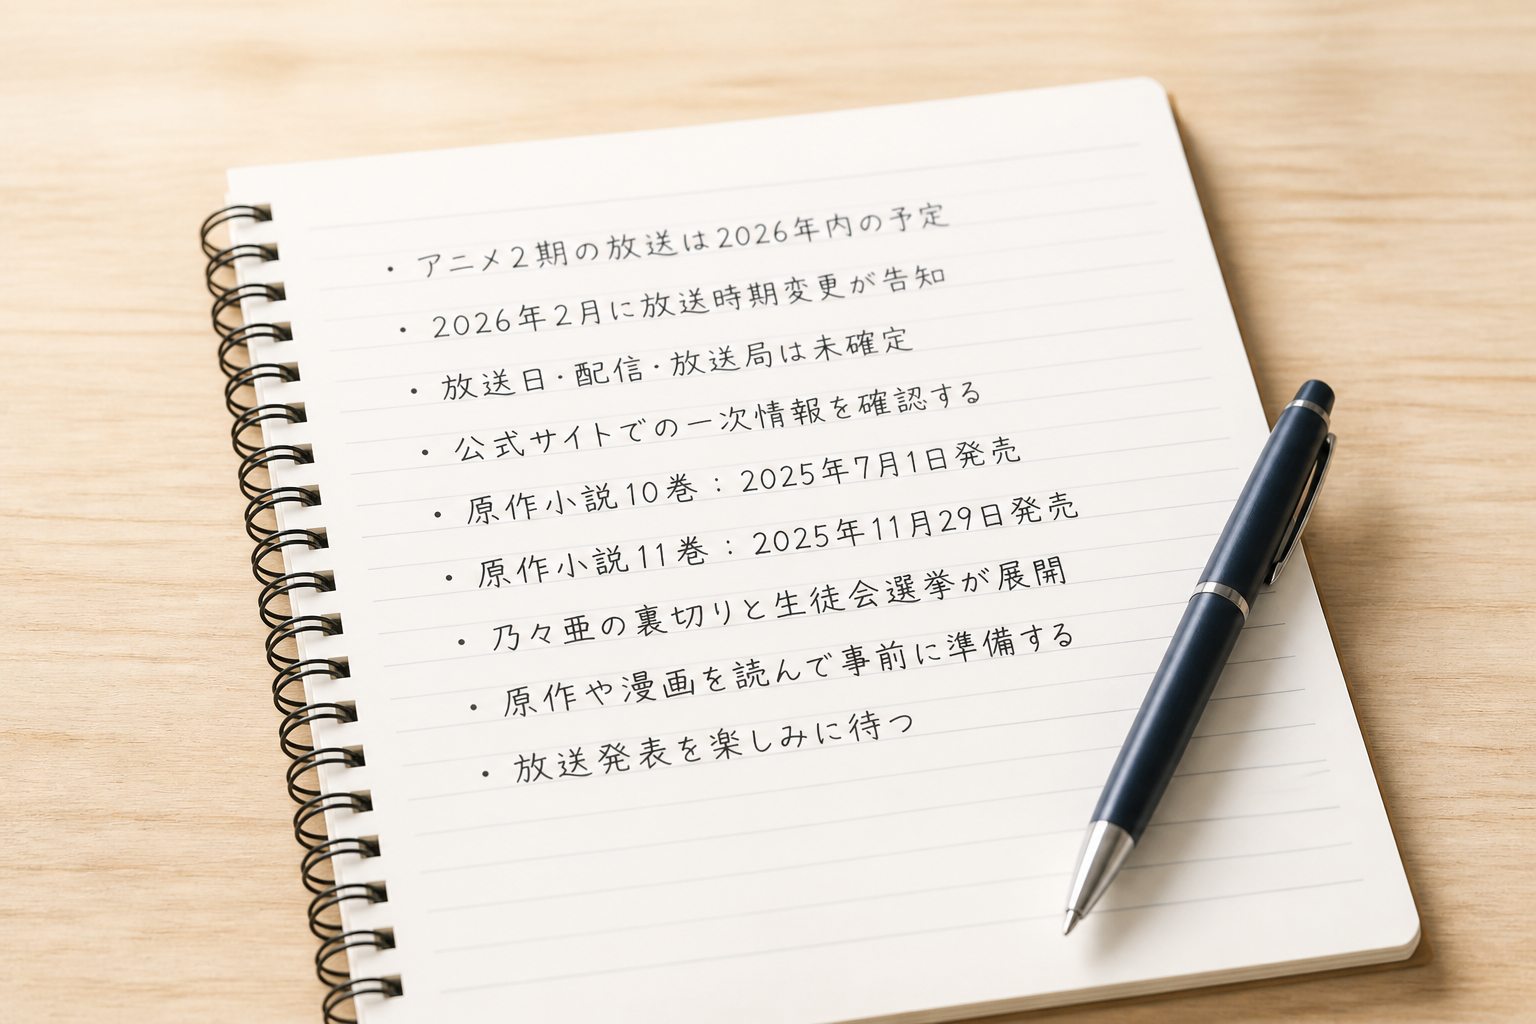 ・アニメ2期の放送は2026年内の予定
・2026年2月に放送時期変更が告知
・放送日・配信・放送局は未確定
・公式サイトでの一次情報を確認する
・原作小説10巻：2025年7月1日発売
・原作小説11巻：2025年11月29日発売
・乃々亜の裏切りと生徒会選挙が展開
・原作や漫画を読んで事前に準備する
・放送発表を楽しみに待つ